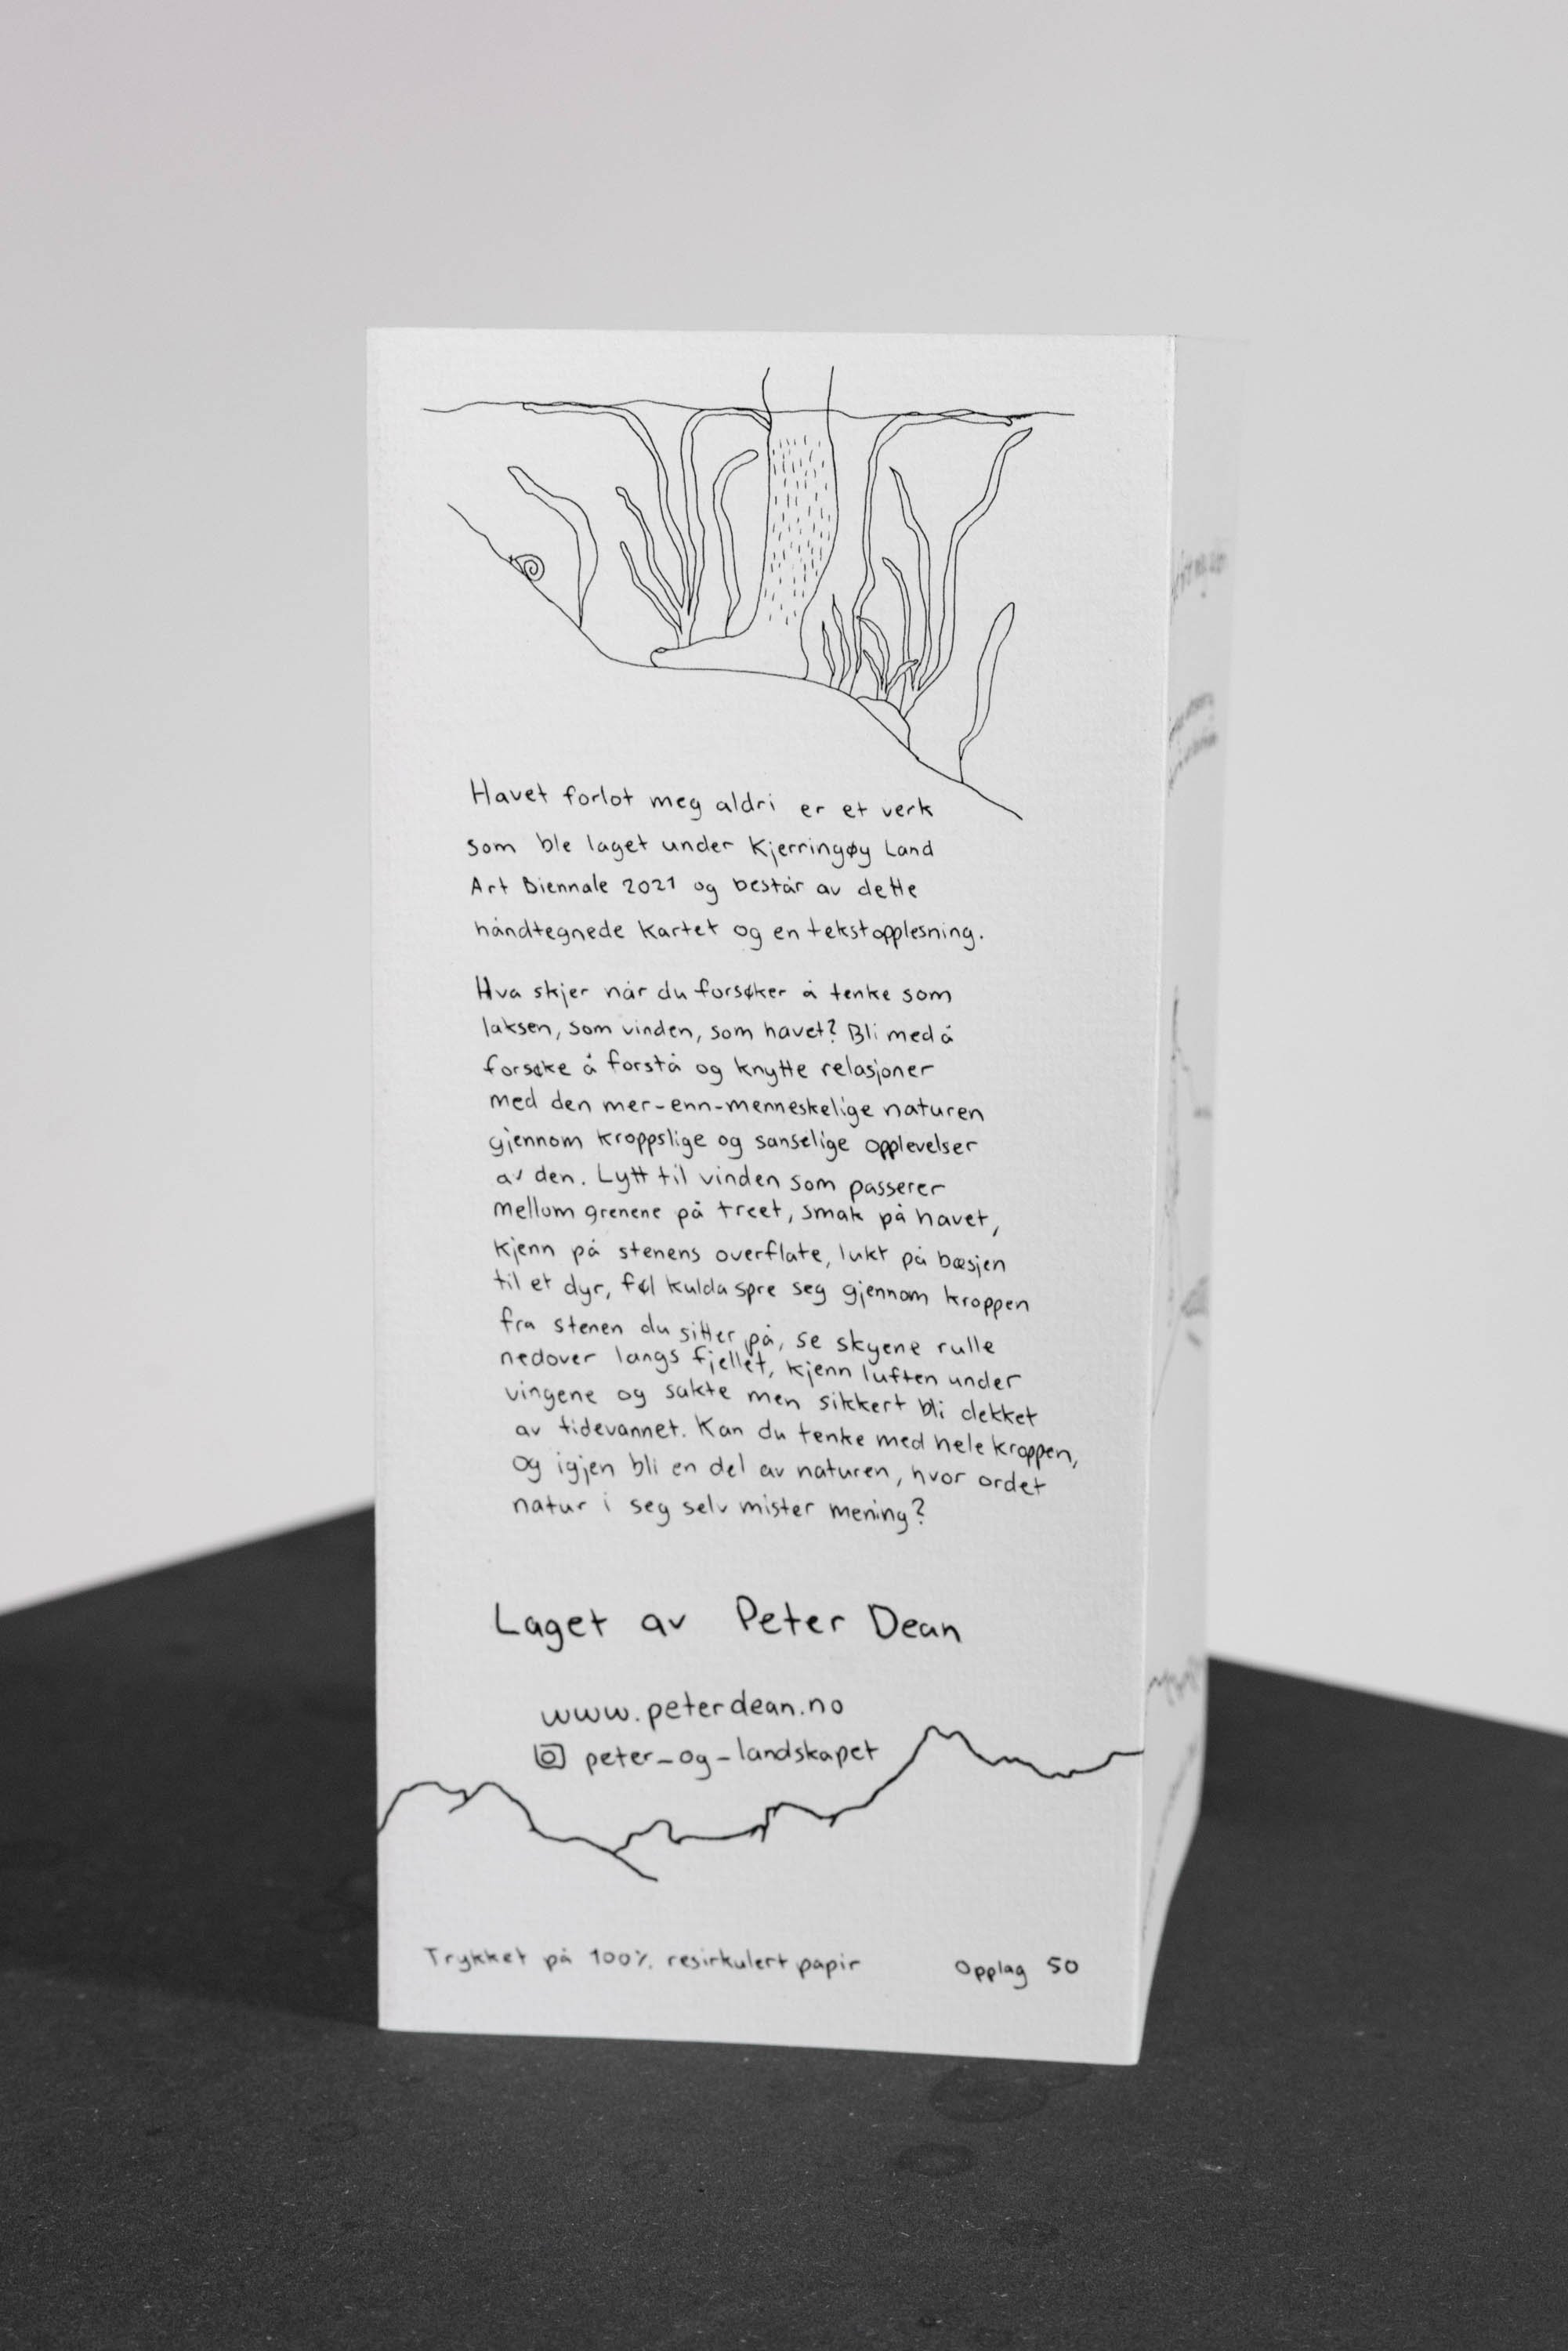 Havet forlot meg aldri er et verk
som ble laget under Kjerringøy Land
Art Biennale 2021 og består av dette
håndtegnede kartet og en tekstopplesning.
Hva skjer når du forsøker å tenke som
laksen, som vinden, som havet? Bli med å
forsøke å forstå og knytte relasjoner
med den mer-enn-menneskelige naturen
gjennom kroppslige og sanselige opplevelser
av den. Lytt til vinden som passerer
mellom grenene på treet, smak på havet,
kjenn på stenens overflate, lukt på bæsjen
til et dyr, føl kulda spre seg gjennom kroppen
fra stenen du sitter på, se skyene rulle
nedover langs fjellet, kjenn luften under
vingene og sakte men sikkert bli dekket
av tidevannet. Kan du tenke med hele kroppen,
og igjen bli en del av naturen, hvor ordet
natur i seg selv mister mening?
Laget av Peter Dean
www.peterdean.no
peter_og_landskapet
Trykket på 100% resirkulert papir Opplag 50